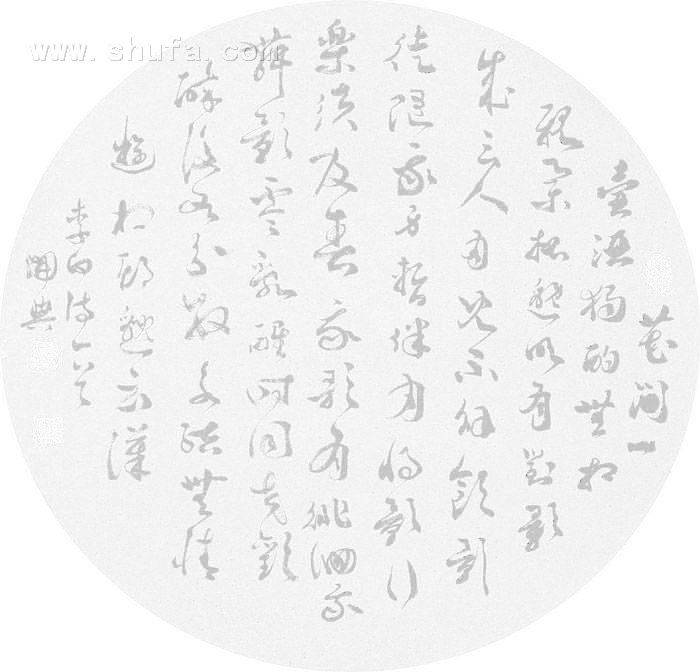 www.shufa.com
花間一
壺酒獨酌無相
親舉杯邀明月對影
成三人月既不解飲影
徒隨我身暫伴月將影行
樂須及春我歌月徘徊我
舞影零亂醒時同交歡
醉後各分散永結無情
遊相期邈云漢
李白詩一首